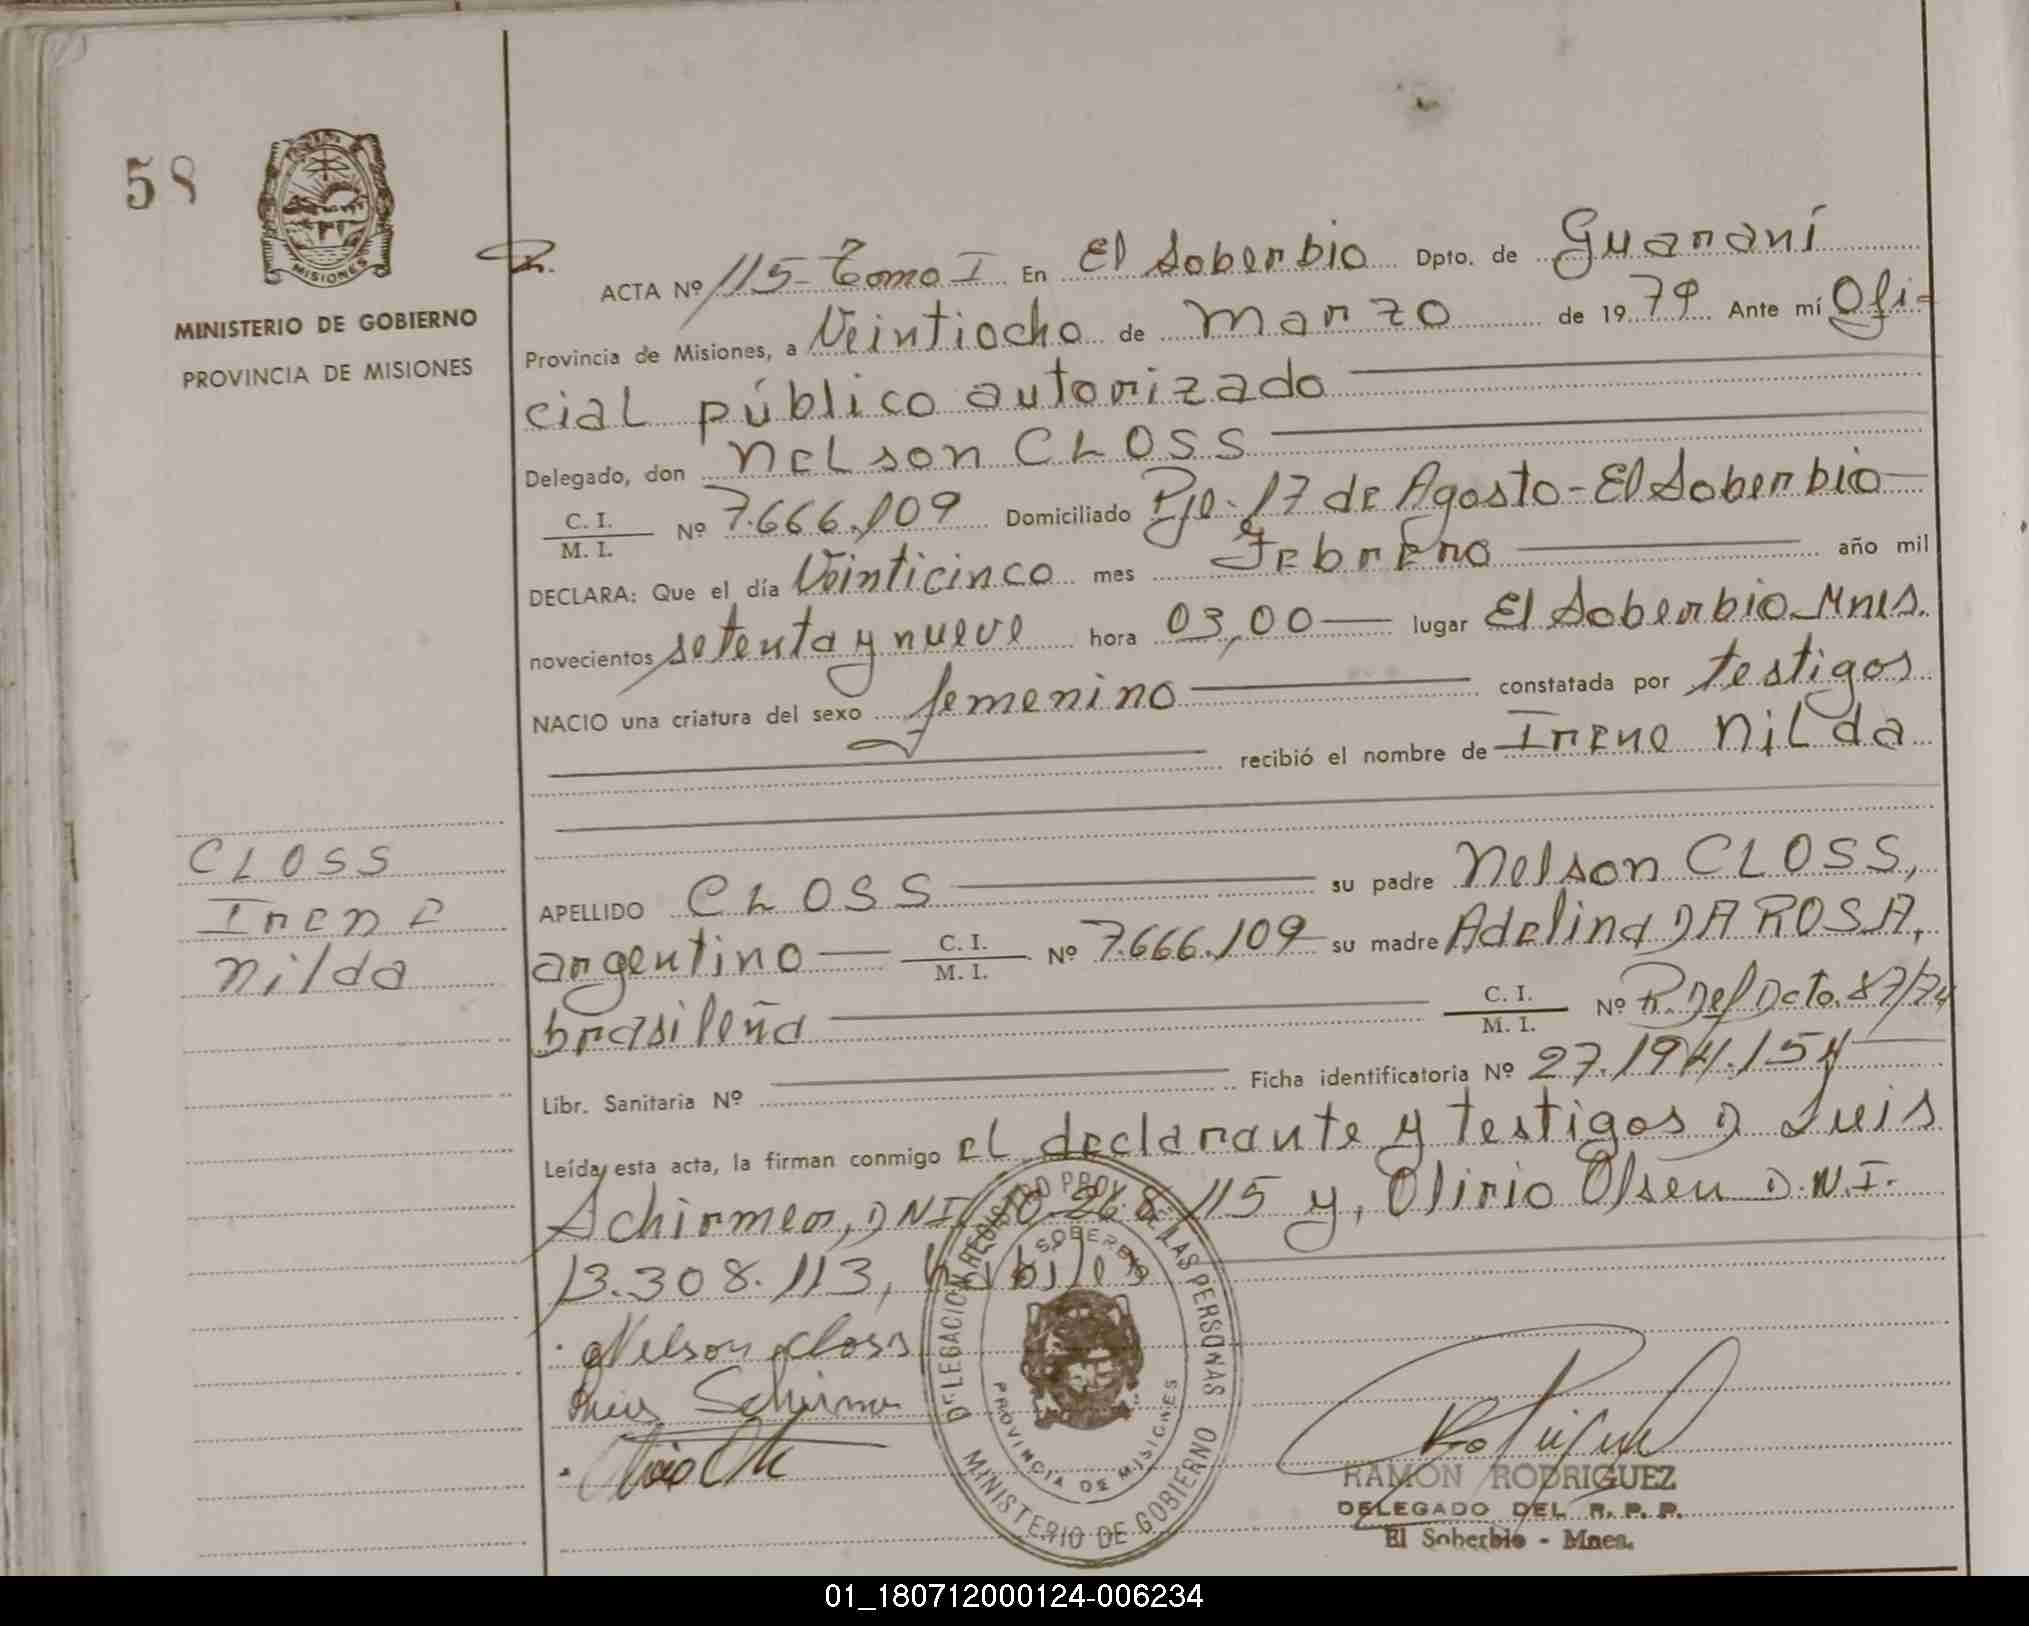 58
MISIONES
MINISTERIO DE GOBIERNO
PROVINCIA DE MISIONES
ACTA Nº 115- Tomo I En El Soberbio Dpto. de Guaraní
Provincia de Misiones, a Veintiocho de Marzo de 1979 Ante mí Ofi-
cial público autorizado
Delegado, don Nelson CLOSS
C. I. / M. I. Nº 7.666.109 Domiciliado Pje. 17 de Agosto - El Soberbio
DECLARA: Que el día Veinticinco mes Febrero año mil
novecientos setenta y nueve hora 03,00 lugar El Soberbio Mnes.
NACIO una criatura del sexo femenino constatada por testigos
recibió el nombre de Irene Nilda
CLOSS
Irene
Nilda
APELLIDO CLOSS su padre Nelson CLOSS,
argentino C. I. / M. I. Nº 7.666.109 su madre Adelina DA ROSA,
brasileña C. I. / M. I. Nº R. Def Dcto. 87/74
Libr. Sanitaria Nº Ficha identificatoria Nº 27.194.154
Leída esta acta, la firman conmigo el declarante y testigos D Luis
Schirmer, DNI. 10.268.115 y, Olirio Olsen D.N.I.
13.308.113, habiles
Nelson Closs
Luis Schirmer
RAMON RODRIGUEZ
DELEGADO DEL R. P. P.
El Soberbio - Mnes.
DELEGACION REGISTRO PROV. DE LAS PERSONAS
SOBERBIO
PROVINCIA DE MISIONES
MINISTERIO DE GOBIERNO
01_180712000124-006234